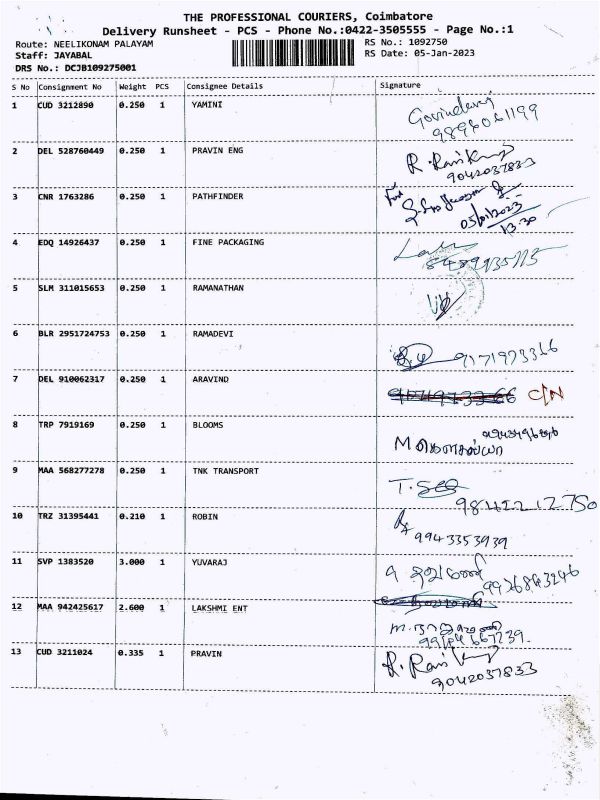 THE PROFESSIONAL COURIERS, Coimbatore
Delivery Runsheet - PCS - Phone No.:0422-3505555 - Page No.:1
Route: NEELIKONAM PALAYAM
RS No.: 1092750
Staff: JAYABAL
RS Date: 05-Jan-2023
DRS No.: DCJB109275001
S No Consignment No Weight PCS Consignee Details Signature
1 CUD 3212890 0.250 1 YAMINI
9896061199
2 DEL 528760449 0.250 1 PRAVIN ENG
R. Ravi Kumar
9042037833
3 CNR 1763286 0.250 1 PATHFINDER
For
05/01/2023
13.30
4 EDQ 14926437 0.250 1 FINE PACKAGING
5 SLM 311015653 0.250 1 RAMANATHAN
6 BLR 2951724753 0.250 1 RAMADEVI
9171973366
7 DEL 910062317 0.250 1 ARAVIND
C/N
8 TRP 7919169 0.250 1 BLOOMS
M கௌசல்யா
9 MAA 568277278 0.250 1 TNK TRANSPORT
10 TRZ 31395441 0.210 1 ROBIN
9943353939
11 SVP 1383520 3.000 1 YUVARAJ
12 MAA 942425617 2.600 1 LAKSHMI ENT
13 CUD 3211024 0.335 1 PRAVIN
R. Ravi Kumar
9042037833